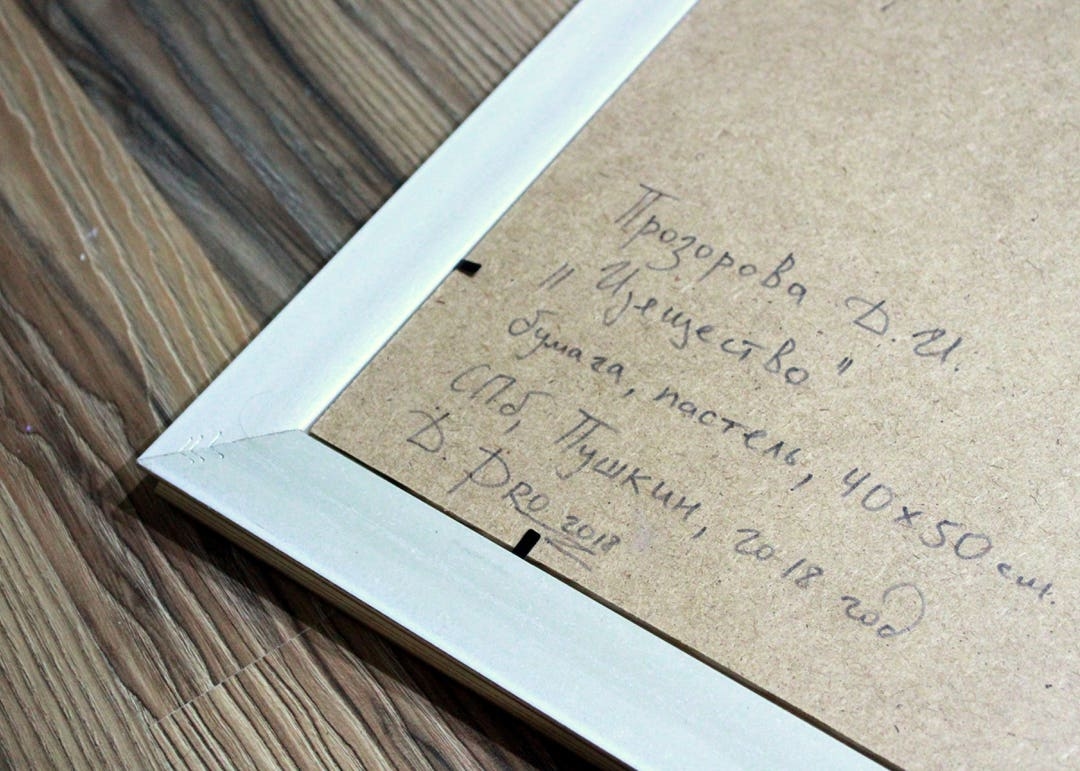 Прозорова Д.И.
"Изещество"
бумага, пастель, 40х50 см.
СПб, Пушкин, 2018 год
D. PRO 2018